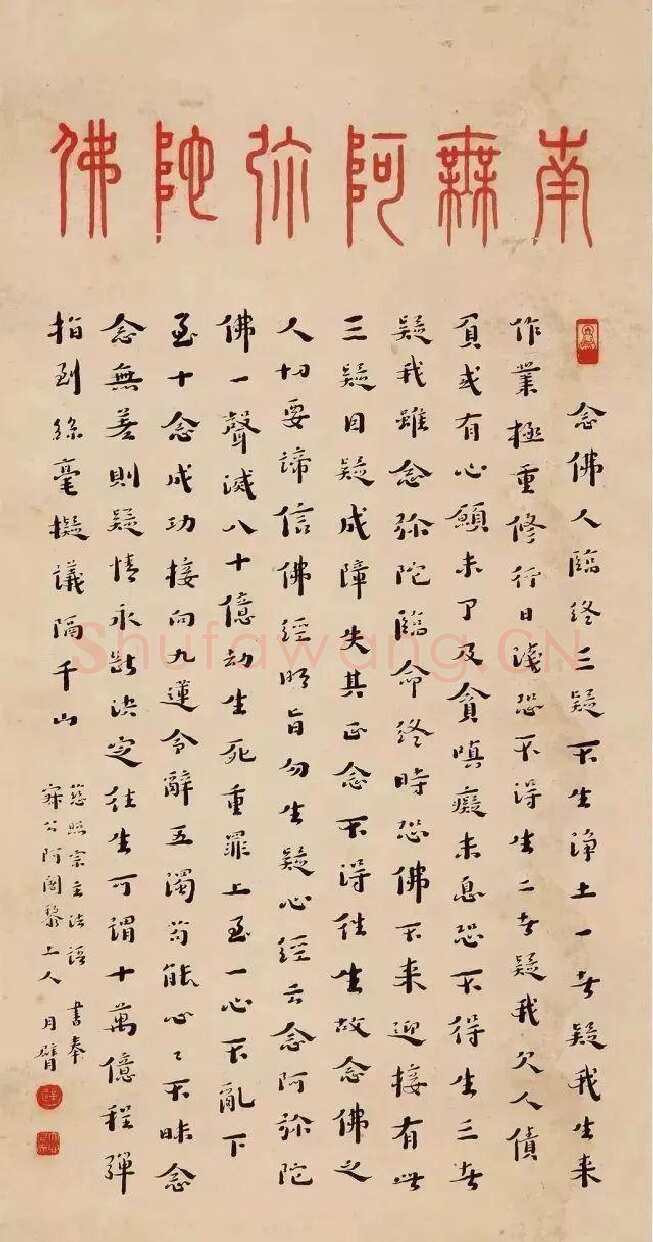 南無阿弥陀佛
念佛人臨終三疑不生浄土一者疑我生来
作業極重修行日淺恐不得生二者疑我欠人債
負或有心願未了及貪嗔癡未息恐不得生三者
疑我雖念弥陀臨命終時恐佛不来迎接有此
三疑因疑成障失其正念不得往生故念佛之
人切要諦信佛經明旨勿生疑心經云念阿弥陀
佛一聲滅八十億劫生死重罪上至一心不亂下
至十念成功接向九蓮令辭五濁苟能心〻不昧念
念無差則疑情永斷決定往生可謂十萬億程彈
指到絲毫擬議隔千山
慈照宗主法語 書奉
寂公阿闍黎上人 月臂
Shufawang.CN